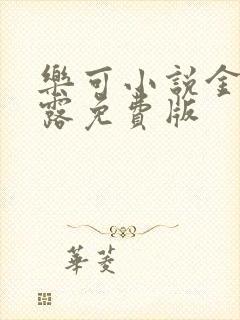 樂可小說金
露免費版
華菱